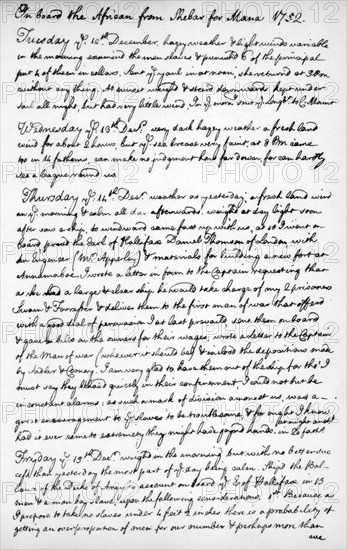 On board the African from Shebar for Mana 1752.
Tuesday ye. 12th December hazey weather & light winds variable
in the morning examined the men slaves & punish'd 6 of the principal
put 4 of them in collars. Sent ye. yaul in at noon, she return'd at 3 PM
without any thing. At sunset weigh'd & stood downward, kept under
sail all night, but had very little wind. In ye. morn sent ye. longbt. to C. Mount
Wednesday ye. 13th Decr. very dark hazey weather a fresh land
wind for about 2 hours, but ye. sea breez very faint, at 8 PM came
too in 14 fathoms, can make no judgment how far down, for can hardly
see a league round us
Thursday ye. 14th Decr. weather as yesterday, a fresh land wind
in ye. morning & calm all day afterwards. weigh'd at day light soon
after saw a ship, to windward came fast up with us, at 10 I went on
board prov'd the Earl of Hallifax Daniel Thomson of London with
an Engineer (Mr. Appleby) & materials for building a new fort at
Annamaboe. I wrote a letter in form to the Captain requesting that
as he had a large & clear ship he would take charge of my 2 prisoners
Swain & Forrester & deliver them to the first man of war that offer'd
with a good deal of perswasion I at last prevail'd sent them on board
& gave bills on the owners for their wages, wrote a letter to the Captain
of the Man of war (whoever it should be) & inclosed the depositions made
by Sadler & Cooney. I am very glad to have them out of the ship for tho' I
must say they behav'd quietly in their confinement I could not but be
in constant alarms, as such a mark of division amongst us, was a
great encouragement to ye. slaves to be troublesome, & for ought I know
had it ever come to extremity they might have joyn'd hands. in fath.
Frayday ye. 15th Decr. weigh'd in the morning but with no better suc-
cess than yesterday the most part of ye. day being calm. Ship'd the Bal-
lance of the Duke of Argyle's account on board ye. Earl Hallifax in 13
men & a man boy slave, upon the following considerations. 1st Because as
I propose to take no slaves under 4 feet 2 inches there is a probability of
getting an over proportion of men for our number & perhaps more than
we